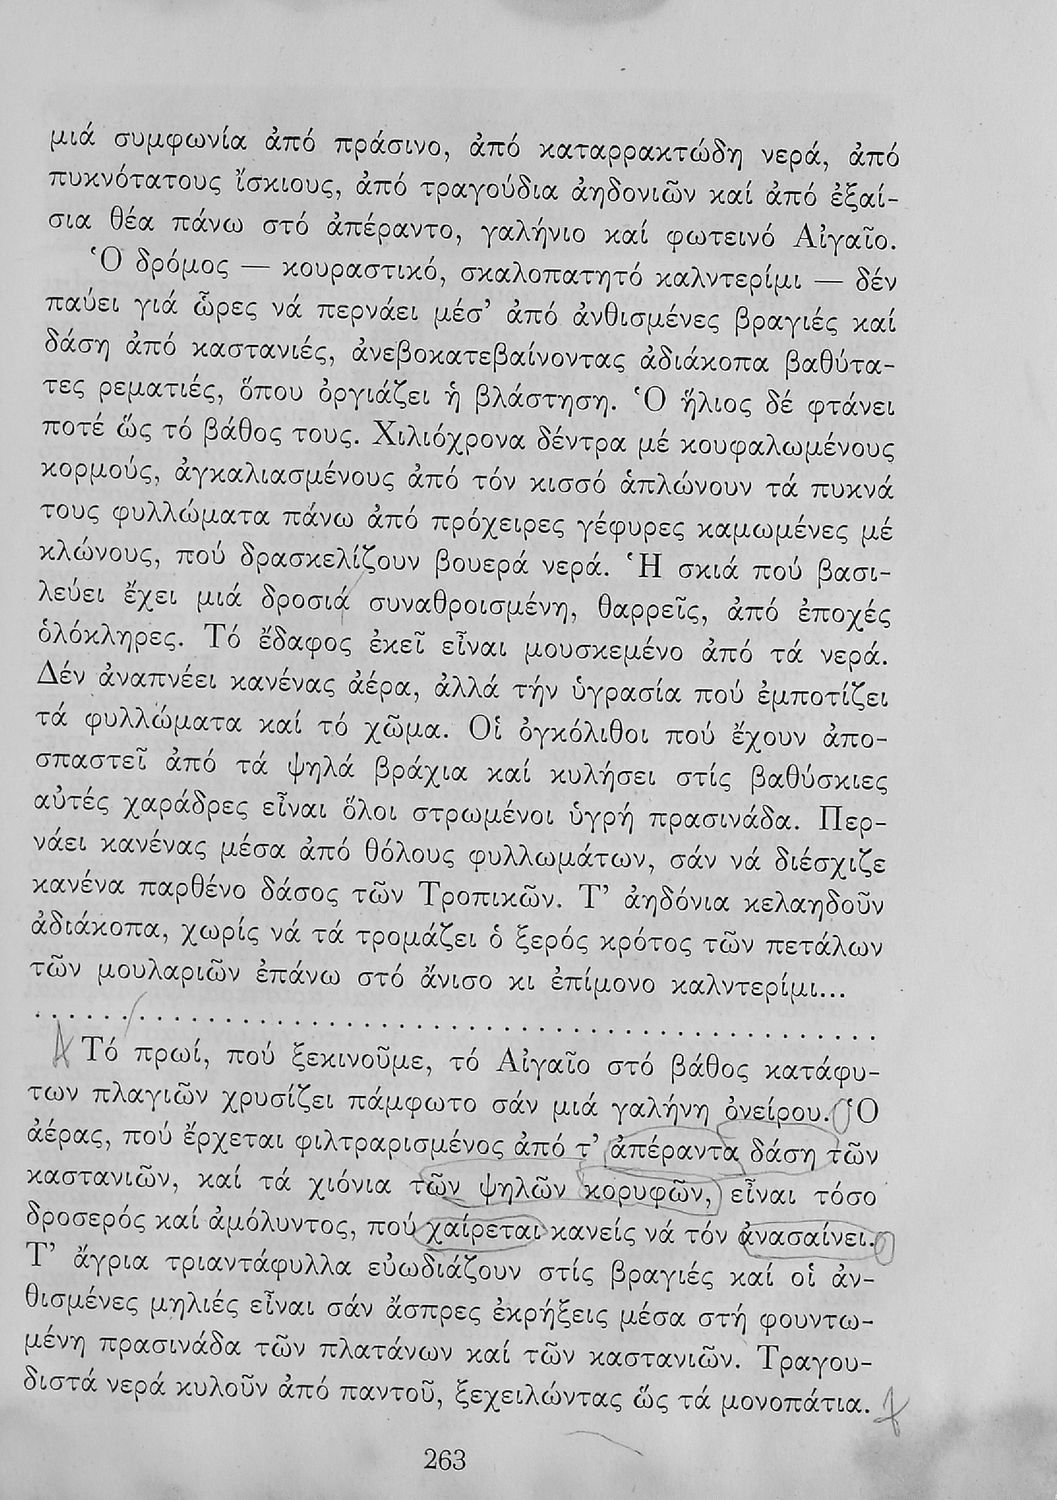 μιά συμφωνία ἀπό πράσινο, ἀπό καταρρακτώδη νερά, ἀπό
πυκνότατους ἴσκιους, ἀπό τραγούδια ἀηδονιῶν καί ἀπό ἐξαί-
σια θέα πάνω στό ἀπέραντο, γαλήνιο καί φωτεινό Αἰγαῖο.
Ὁ δρόμος — κουραστικό, σκαλοπατητό καλντερίμι — δέν
παύει γιά ὧρες νά περνάει μέσ’ ἀπό ἀνθισμένες βραγιές καί
δάση ἀπό καστανιές, ἀνεβοκατεβαίνοντας ἀδιάκοπα βαθύτα-
τες ρεματιές, ὅπου ὀργιάζει ἡ βλάστηση. Ὁ ἥλιος δέ φτάνει
ποτέ ὥς τό βάθος τους. Χιλιόχρονα δέντρα μέ κουφαλωμένους
κορμούς, ἀγκαλιασμένους ἀπό τόν κισσό ἁπλώνουν τά πυκνά
τους φυλλώματα πάνω ἀπό πρόχειρες γέφυρες καμωμένες μέ
κλώνους, πού δρασκελίζουν βουερά νερά. Ἡ σκιά πού βασι-
λεύει ἔχει μιά δροσιά συναθροισμένη, θαρρεῖς, ἀπό ἐποχές
ὁλόκληρες. Τό ἔδαφος ἐκεῖ εἶναι μουσκεμένο ἀπό τά νερά.
Δέν ἀναπνέει κανένας ἀέρα, ἀλλά τήν ὑγρασία πού ἐμποτίζει
τά φυλλώματα καί τό χῶμα. Οἱ ὀγκόλιθοι πού ἔχουν ἀπο-
σπαστεῖ ἀπό τά ψηλά βράχια καί κυλήσει στίς βαθύσκιες
αὐτές χαράδρες εἶναι ὅλοι στρωμένοι ὑγρή πρασινάδα. Περ-
νάει κανένας μέσα ἀπό θόλους φυλλωμάτων, σάν νά διέσχιζε
κανένα παρθένο δάσος τῶν Τροπικῶν. Τ’ ἀηδόνια κελαηδοῦν
ἀδιάκοπα, χωρίς νά τά τρομάζει ὁ ξερός κρότος τῶν πετάλων
τῶν μουλαριῶν ἐπάνω στό ἄνισο κι ἐπίμονο καλντερίμι...
. . . . . . . . . . . . . . . . . . . . . . . . . . . . . . . . . . . . . . . .
Τό πρωί, πού ξεκινοῦμε, τό Αἰγαῖο στό βάθος κατάφυ-
των πλαγιῶν χρυσίζει πάμφωτο σάν μιά γαλήνη ὀνείρου. Ὁ
ἀέρας, πού ἔρχεται φιλτραρισμένος ἀπό τ’ ἀπέραντα δάση τῶν
καστανιῶν, καί τά χιόνια τῶν ψηλῶν κορυφῶν, εἶναι τόσο
δροσερός καί ἀμόλυντος, πού χαίρεται κανείς νά τόν ἀνασαίνει.
Τ’ ἄγρια τριαντάφυλλα εὐωδιάζουν στίς βραγιές καί οἱ ἀν-
θισμένες μηλιές εἶναι σάν ἄσπρες ἐκρήξεις μέσα στή φουντω-
μένη πρασινάδα τῶν πλατάνων καί τῶν καστανιῶν. Τραγου-
διστά νερά κυλοῦν ἀπό παντοῦ, ξεχειλώντας ὥς τά μονοπάτια.
263